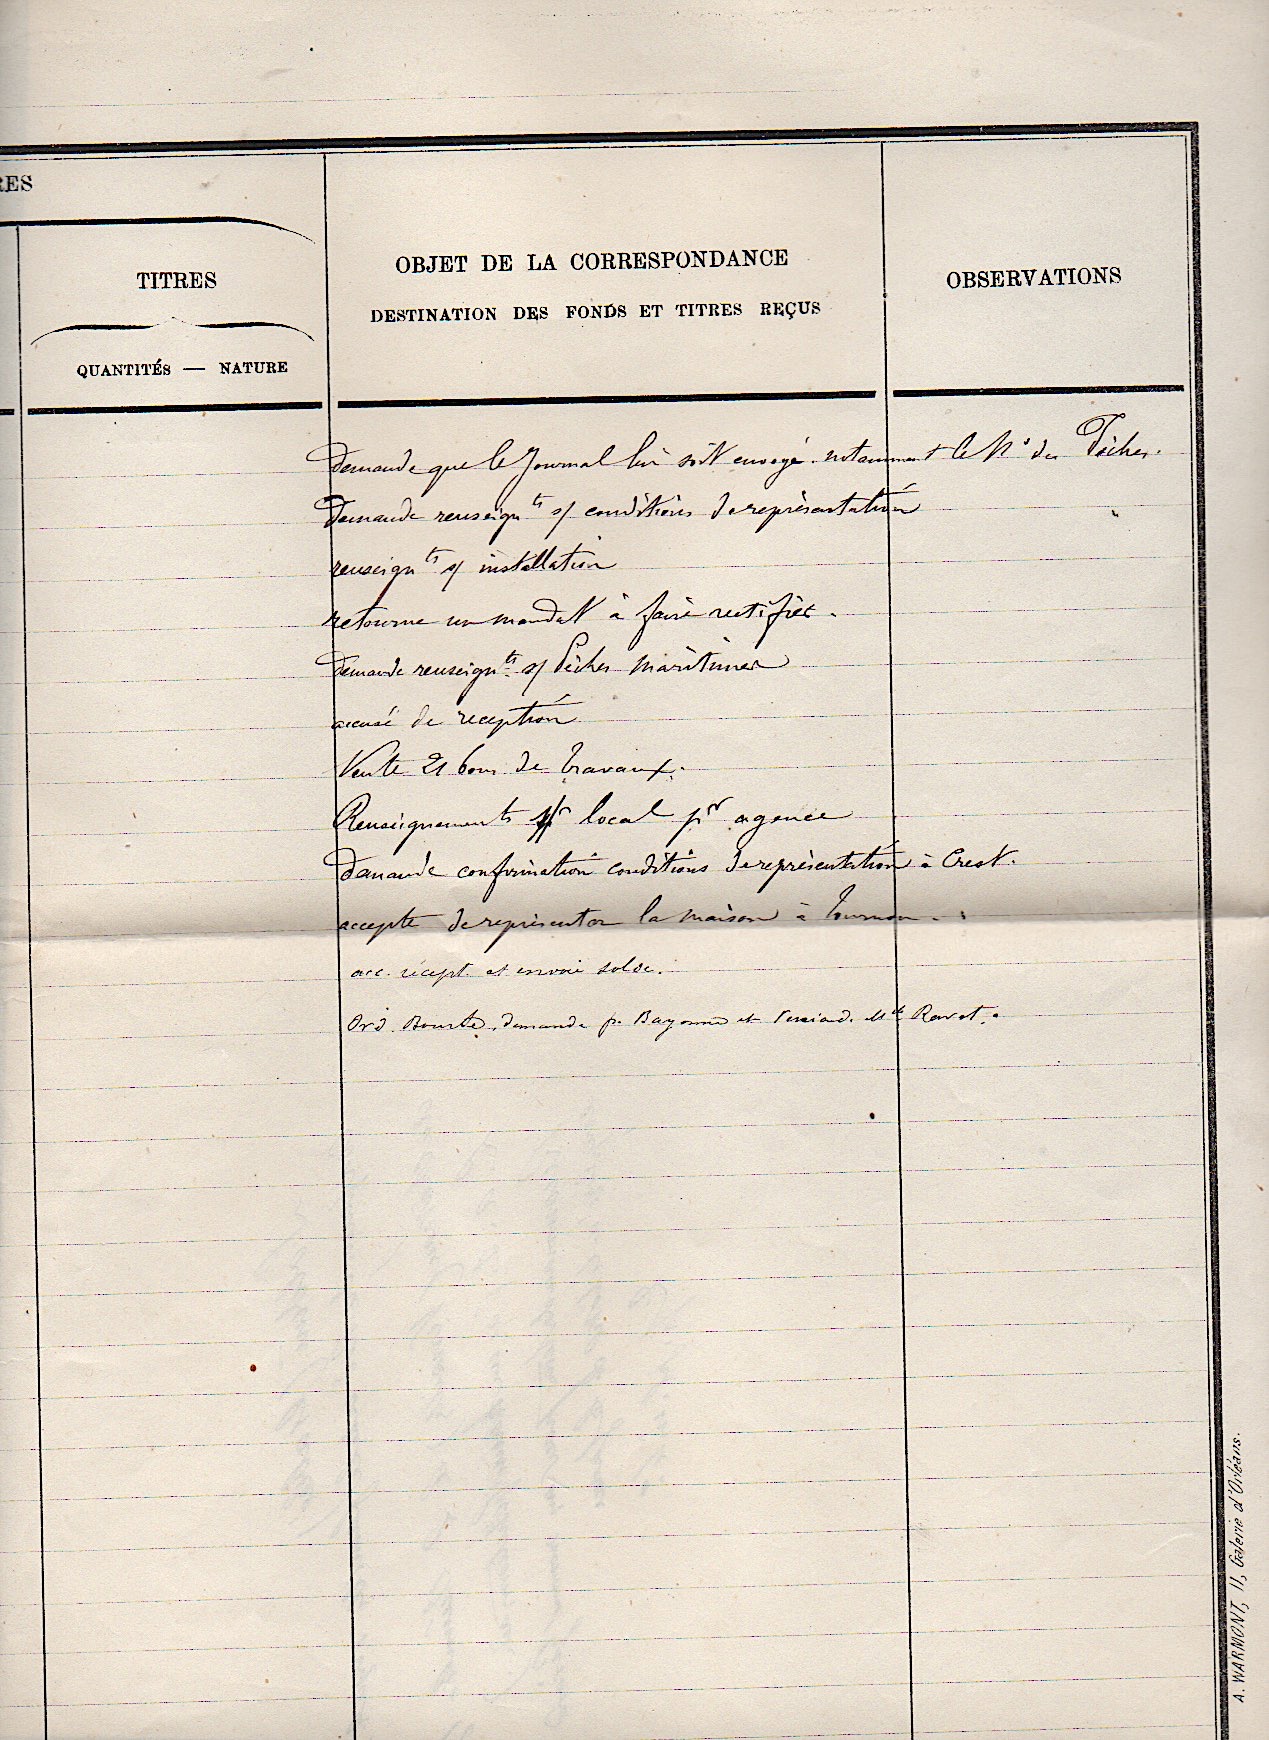 RES
TITRES
QUANTITÉS — NATURE
OBJET DE LA CORRESPONDANCE
DESTINATION DES FONDS ET TITRES REÇUS
OBSERVATIONS
Demande que le Journal lui soit envoyé notamment le No des Pêches.
Demande renseignts s/ conditions de représentation
renseignts s/ installation
retourne un mandat à faire rectifier.
Demande renseignts s/ Pêches maritimes
accusé de réception
Vente 21 bons de travaux.
Renseignements sr local pr agence
Demande confirmation conditions de représentation à Crest.
accepte de représenter la maison à Tournon.
acc. récept. et envoi solde.
Ord. Bourse, demande p. Bayonne et Mde Ravet.
A. WARMONT, 11, Galerie d'Orléans.